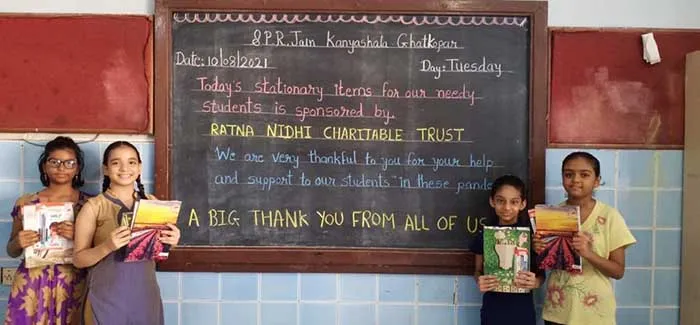 S.P.R. Jain Kanyashala Ghatkopar
Date: 10/08/2021 Day: Tuesday
Today's stationary items for our needy
students is sponsored by.
RATNA NIDHI CHARITABLE TRUST
We are very thankful to you for your help
and support to our students in these
A BIG THANK YOU FROM ALL OF US